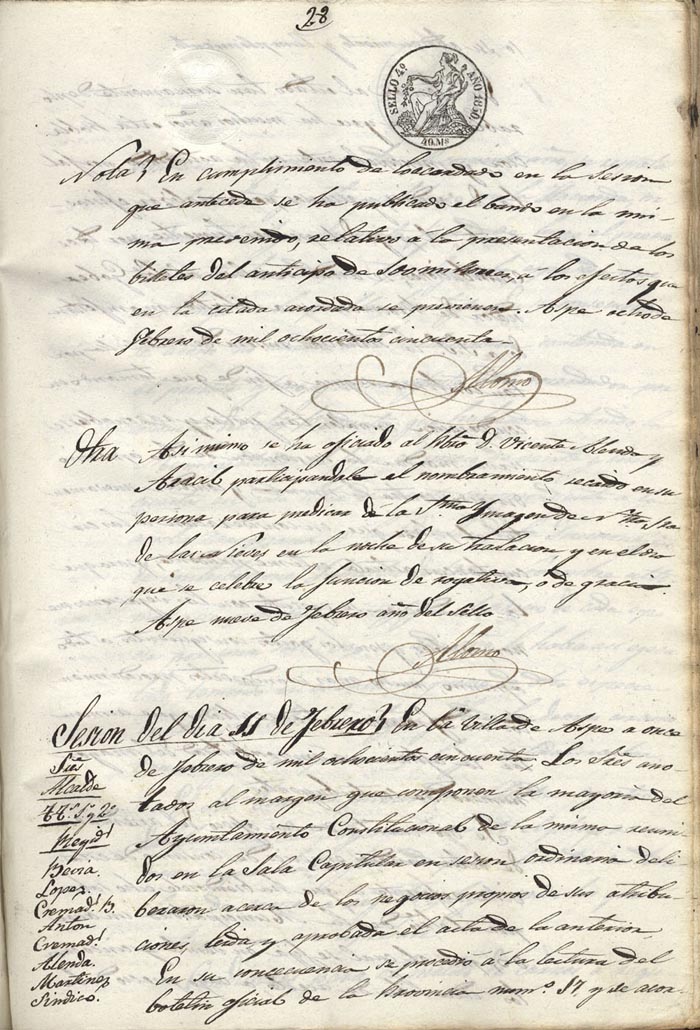 28
SELLO 4º AÑO 1850
40. Ms
Nota? En cumplimiento de lo acordado en la sesion
que antecede se ha publicado el bando en la mis-
ma prevenido, relativo á la presentacion de los
billetes del anticipo de 100 millones, á los efectos que
en la citada acordada se previenen. Aspe ocho de
febrero de mil ochocientos cincuenta
Alonso
Otra Asimimo se ha oficiado al Pbro D. Vicente Alenda y
Aracil participandole el nombramiento recaido en su
persona para predicar de la Stma Ymagen de Ntra Sra
de las Nieves en la noche de su traslacion, y en el dia
que se celebre la funcion de rogativa, ó de gracia.
Aspe nueve de febrero año del sello
Alonso
Sesion del dia 11 de febrero? En la Villa de Aspe a once
de febrero de mil ochocientos cincuenta, Los Sres ano-
tados al margen que componen la mayoria del
Ayuntamiento Constitucional de la misma reuni-
dos en la Sala Capitular en sesion ordinaria deli-
beraron acerca de los negocios propios de sus atribu-
ciones, leida y aprobada el acta de la anterior.
En su consecuencia se procedió a la lectura del
boletin oficial de la Provincia numº 17, y se acor-
Sres
Alcalde
TTes 1º y 2º
Regid.
Bevia.
Lopez.
Cremad. B.
Anton
Cremad.
Alenda.
Martinez
Sindico.